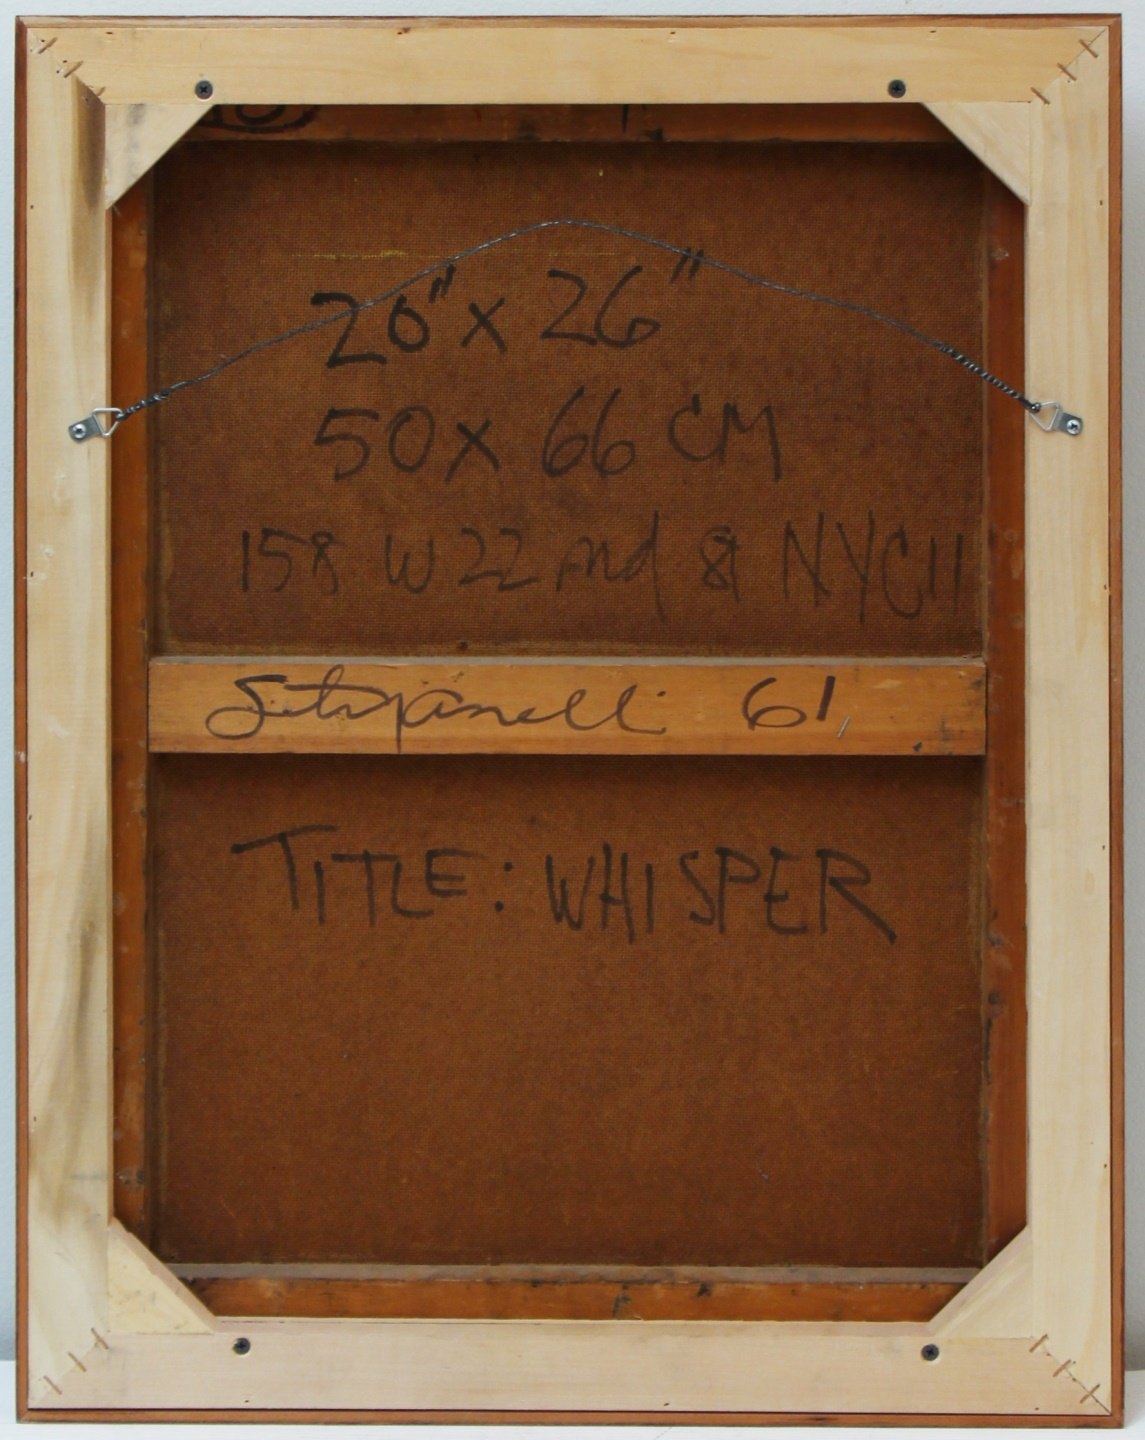 20" x 26"
50 x 66 CM
158 W 22 nd St NYC 11
61
TITLE: WHISPER